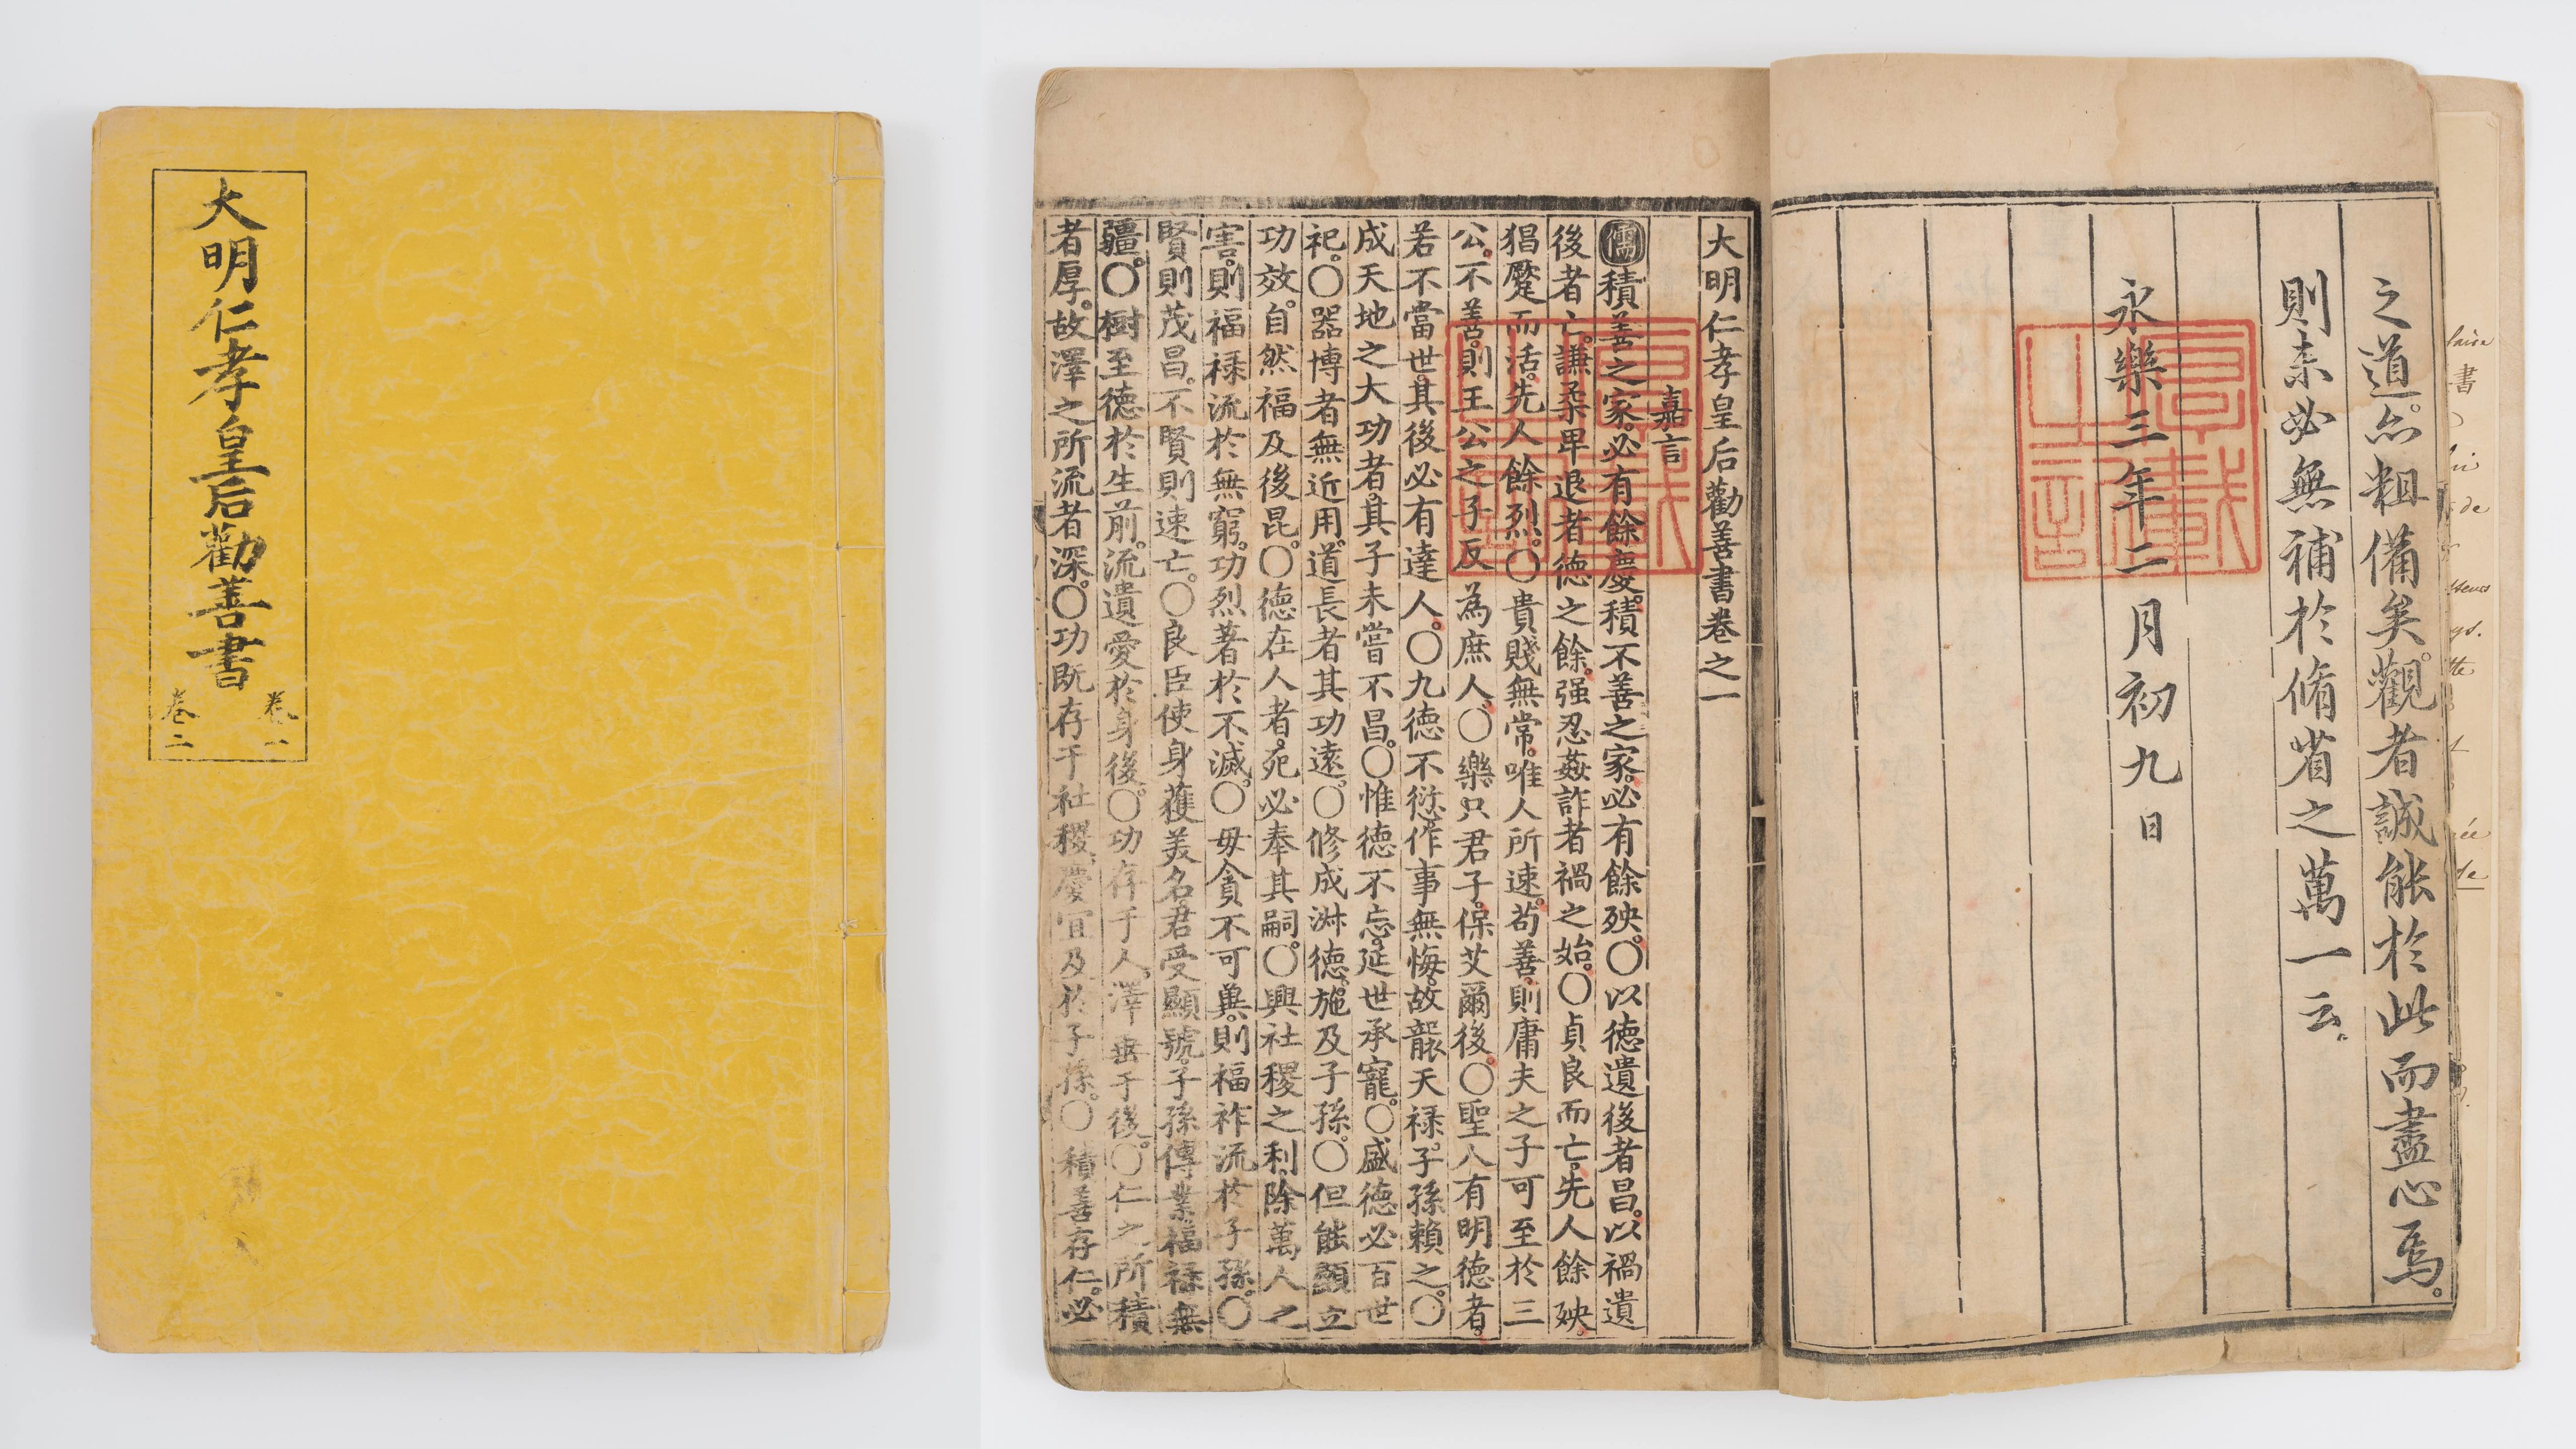 大明仁孝皇后勸善書
卷一
卷二
之道。亦粗備矣。觀者誠能於此而盡心焉。
則未必無補於脩省之萬一云。
永樂三年二月初九日
大明仁孝皇后勸善書卷之一
嘉言
儒積善之家。必有餘慶。積不善之家。必有餘殃。〇以德遺後者昌。以禍遺
後者亡。謙柔卑退者德之餘。强忍姦詐者禍之始。〇貞良而亡。先人餘殃。
猖蹷而活。先人餘烈。〇貴賤無常。唯人所速。苟善。則庸夫之子可至於三
公。不善。則王公之子反為庶人。〇樂只君子。保艾爾後。〇聖人有明德者。
若不當世。其後必有達人。〇九德不愆。作事無悔。故襲天祿。子孫賴之。〇
成天地之大功者。其子未嘗不昌。〇惟德不忘。延世承寵。〇盛德必百世
祀。〇器博者無近用。道長者其功遠。〇修成淋德。施及子孫。〇但能顯立
功效。自然福及後昆。〇德在人者。死必奉其嗣。〇興社稷之利。除萬人之
害。則福祿流於無窮。功烈著於不滅。〇毋貪不可兾。則福祚流於子孫。〇
賢則茂昌。不賢則速亡。〇良臣使身獲美名。君受顯號。子孫傳業。福祿無
疆。〇樹至德於生前。流遺愛於身後。〇功存于人。澤垂于後。〇仁之所積
者厚。故澤之所流者深。〇功既存于社稷。慶宜及於子孫。〇積善存仁。必